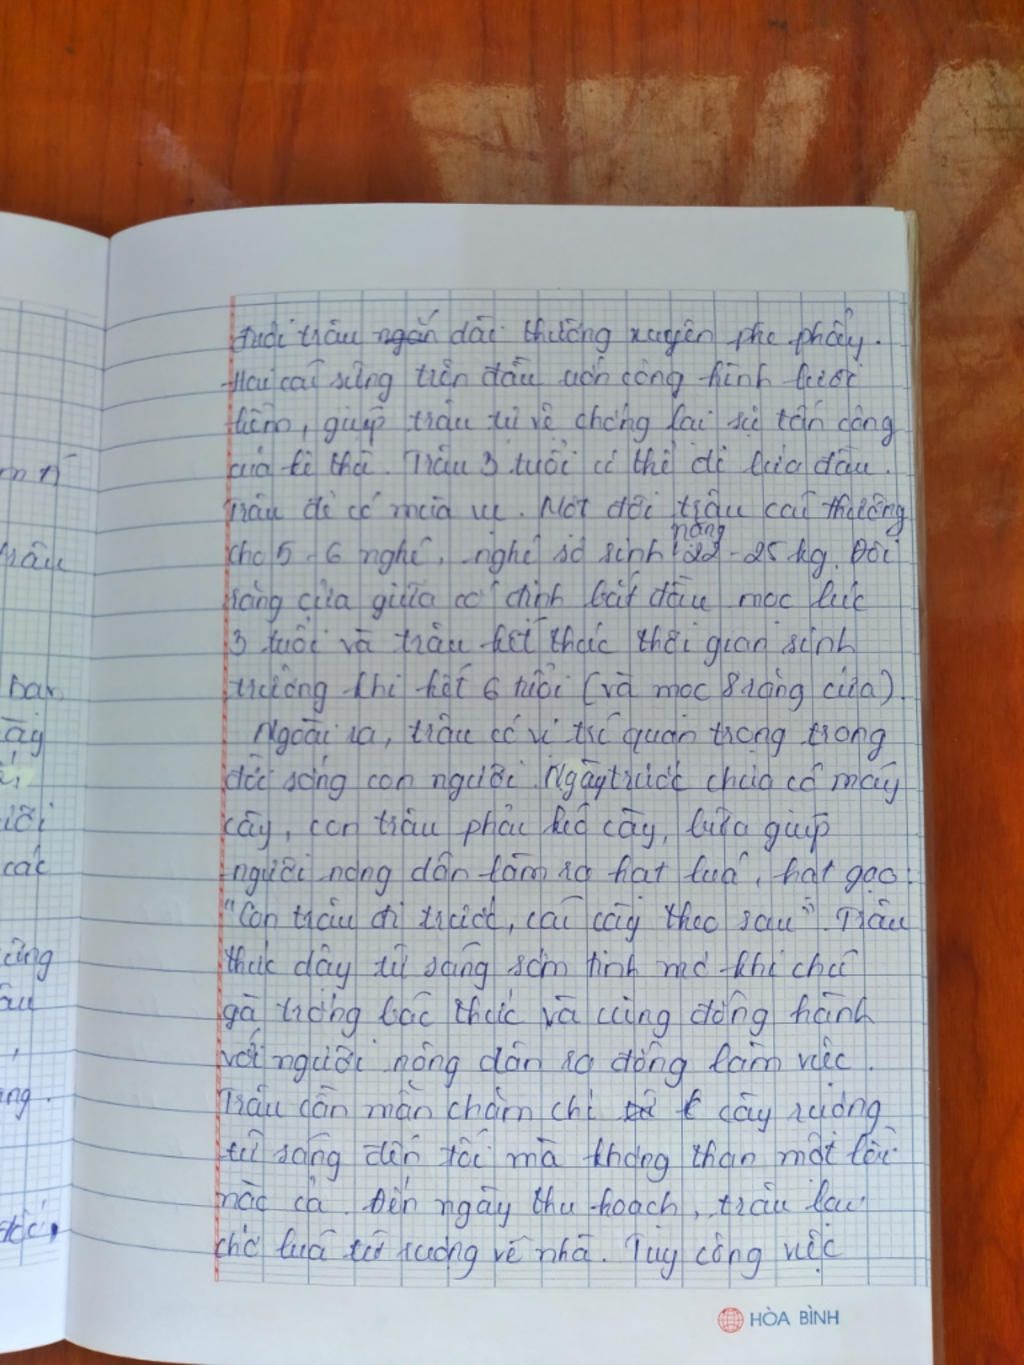 đuôi trâu ngắn dài thường xuyên phe phẩy.
Hai cái sừng trên đầu uốn công hình lưỡi
liềm, giúp trâu tự vệ chống lại sự tấn công
của kẻ thù. Trâu 3 tuổi có thể đẻ lứa đầu.
Trâu đẻ có mùa vụ. Một đời trâu cái thường
cho 5 - 6 nghé, nghé sơ sinh nặng 22 - 25 kg. Đôi
răng cửa giữa cố định bắt đầu mọc lúc
3 tuổi và trâu kết thúc thời gian sinh
trưởng khi hết 6 tuổi (và mọc 8 răng cửa).
Ngoài ra, trâu có vị trí quan trọng trong
đời sống con người. Ngày trước chưa có máy
cày, con trâu phải kéo cày, bừa giúp
người nông dân làm ra hạt luá, hạt gạo:
"Con trâu đi trước, cái cày theo sau". Trâu
thức dậy từ sáng sớm tinh mơ khi chú
gà trống báo thức và cùng đồng hành
với người nông dân ra đồng làm việc.
Trâu cần mẫn chăm chỉ cày ruộng
từ sáng đến tối mà không than một lời
nào cả. Đến ngày thu hoạch, trâu lại
chở luá từ ruộng về nhà. Tuy công việc
HÒA BÌNH
trâu
ban
cày
các